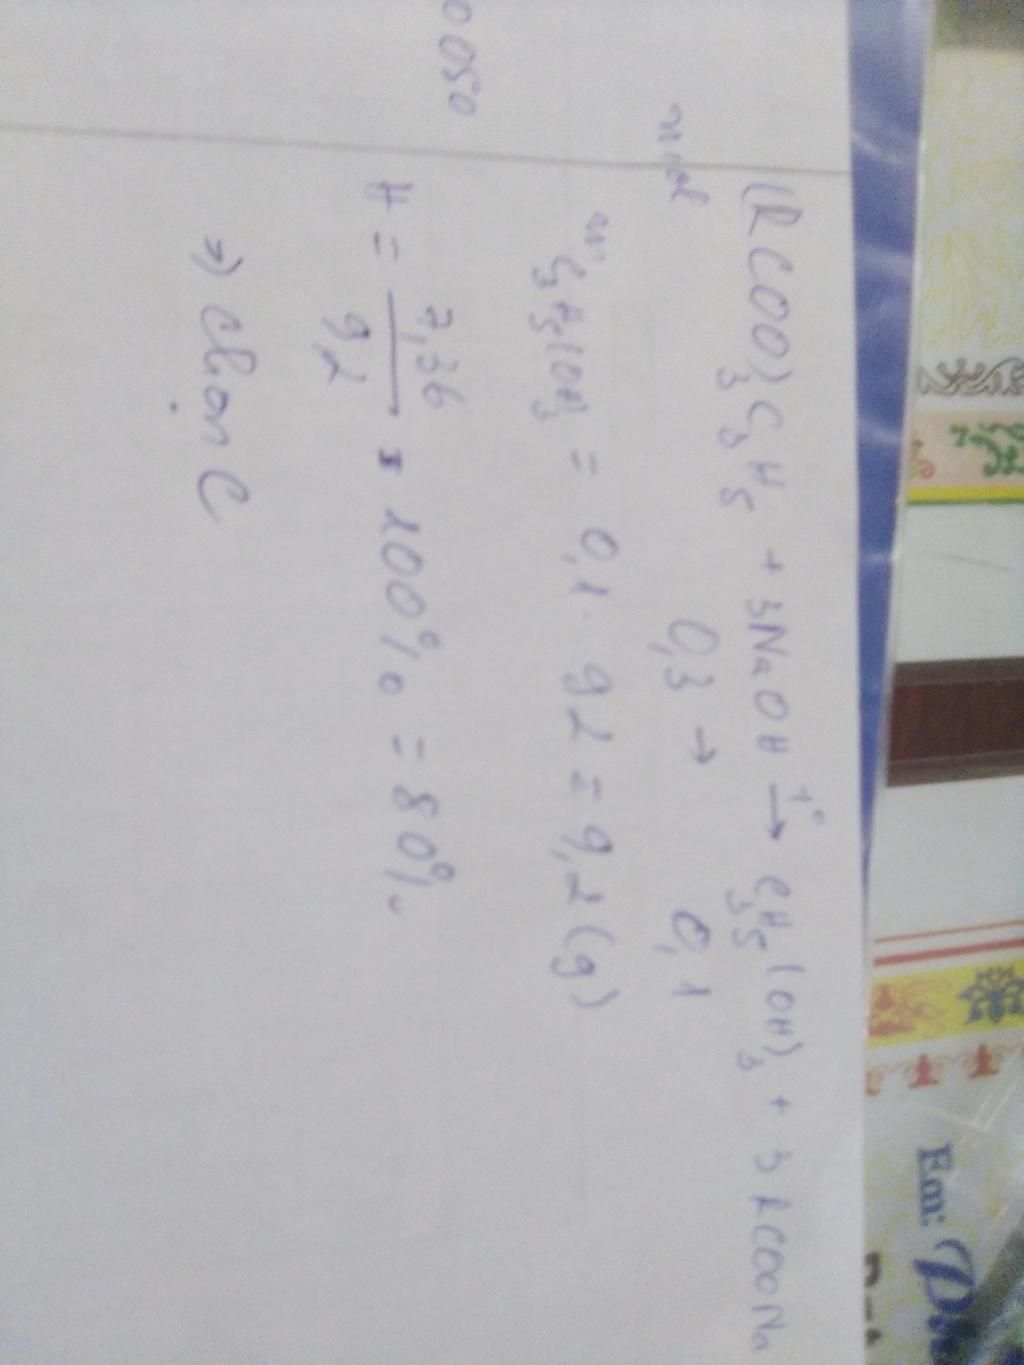 (RCOO)₃C₃H₅ + 3NaOH →t° C₃H₅(OH)₃ + 3RCOONa
mol 0,3 → 0,1
m C₃H₅(OH)₃ = 0,1. 92 = 9,2 (g)
H = 7,36 / 9,2 . 100% = 80%
=> chọn C
0050
Em: